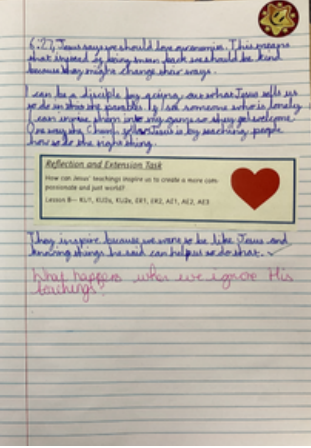 6:27, Jesus says we should love our enemies. This means
that instead of being mean back we should be kind
because they might change their ways.
I can be a disciple by going out what Jesus tells us
to do in the parable. If I see someone who is lonely
I can invite them into my game so they get welcome.
One way the Church follow Jesus is by teaching people
how to do the right thing.
Reflection and Extension Task
How can Jesus' teachings inspire us to create a more com-
passionate and just world?
Lesson 8— KU1, KU2s, KU3s, ER1, ER2, AE1, AE2, AE3
They inspire because we want to be like Jesus and
knowing things he said can help us do that.
What happens when we ignore His
teachings?